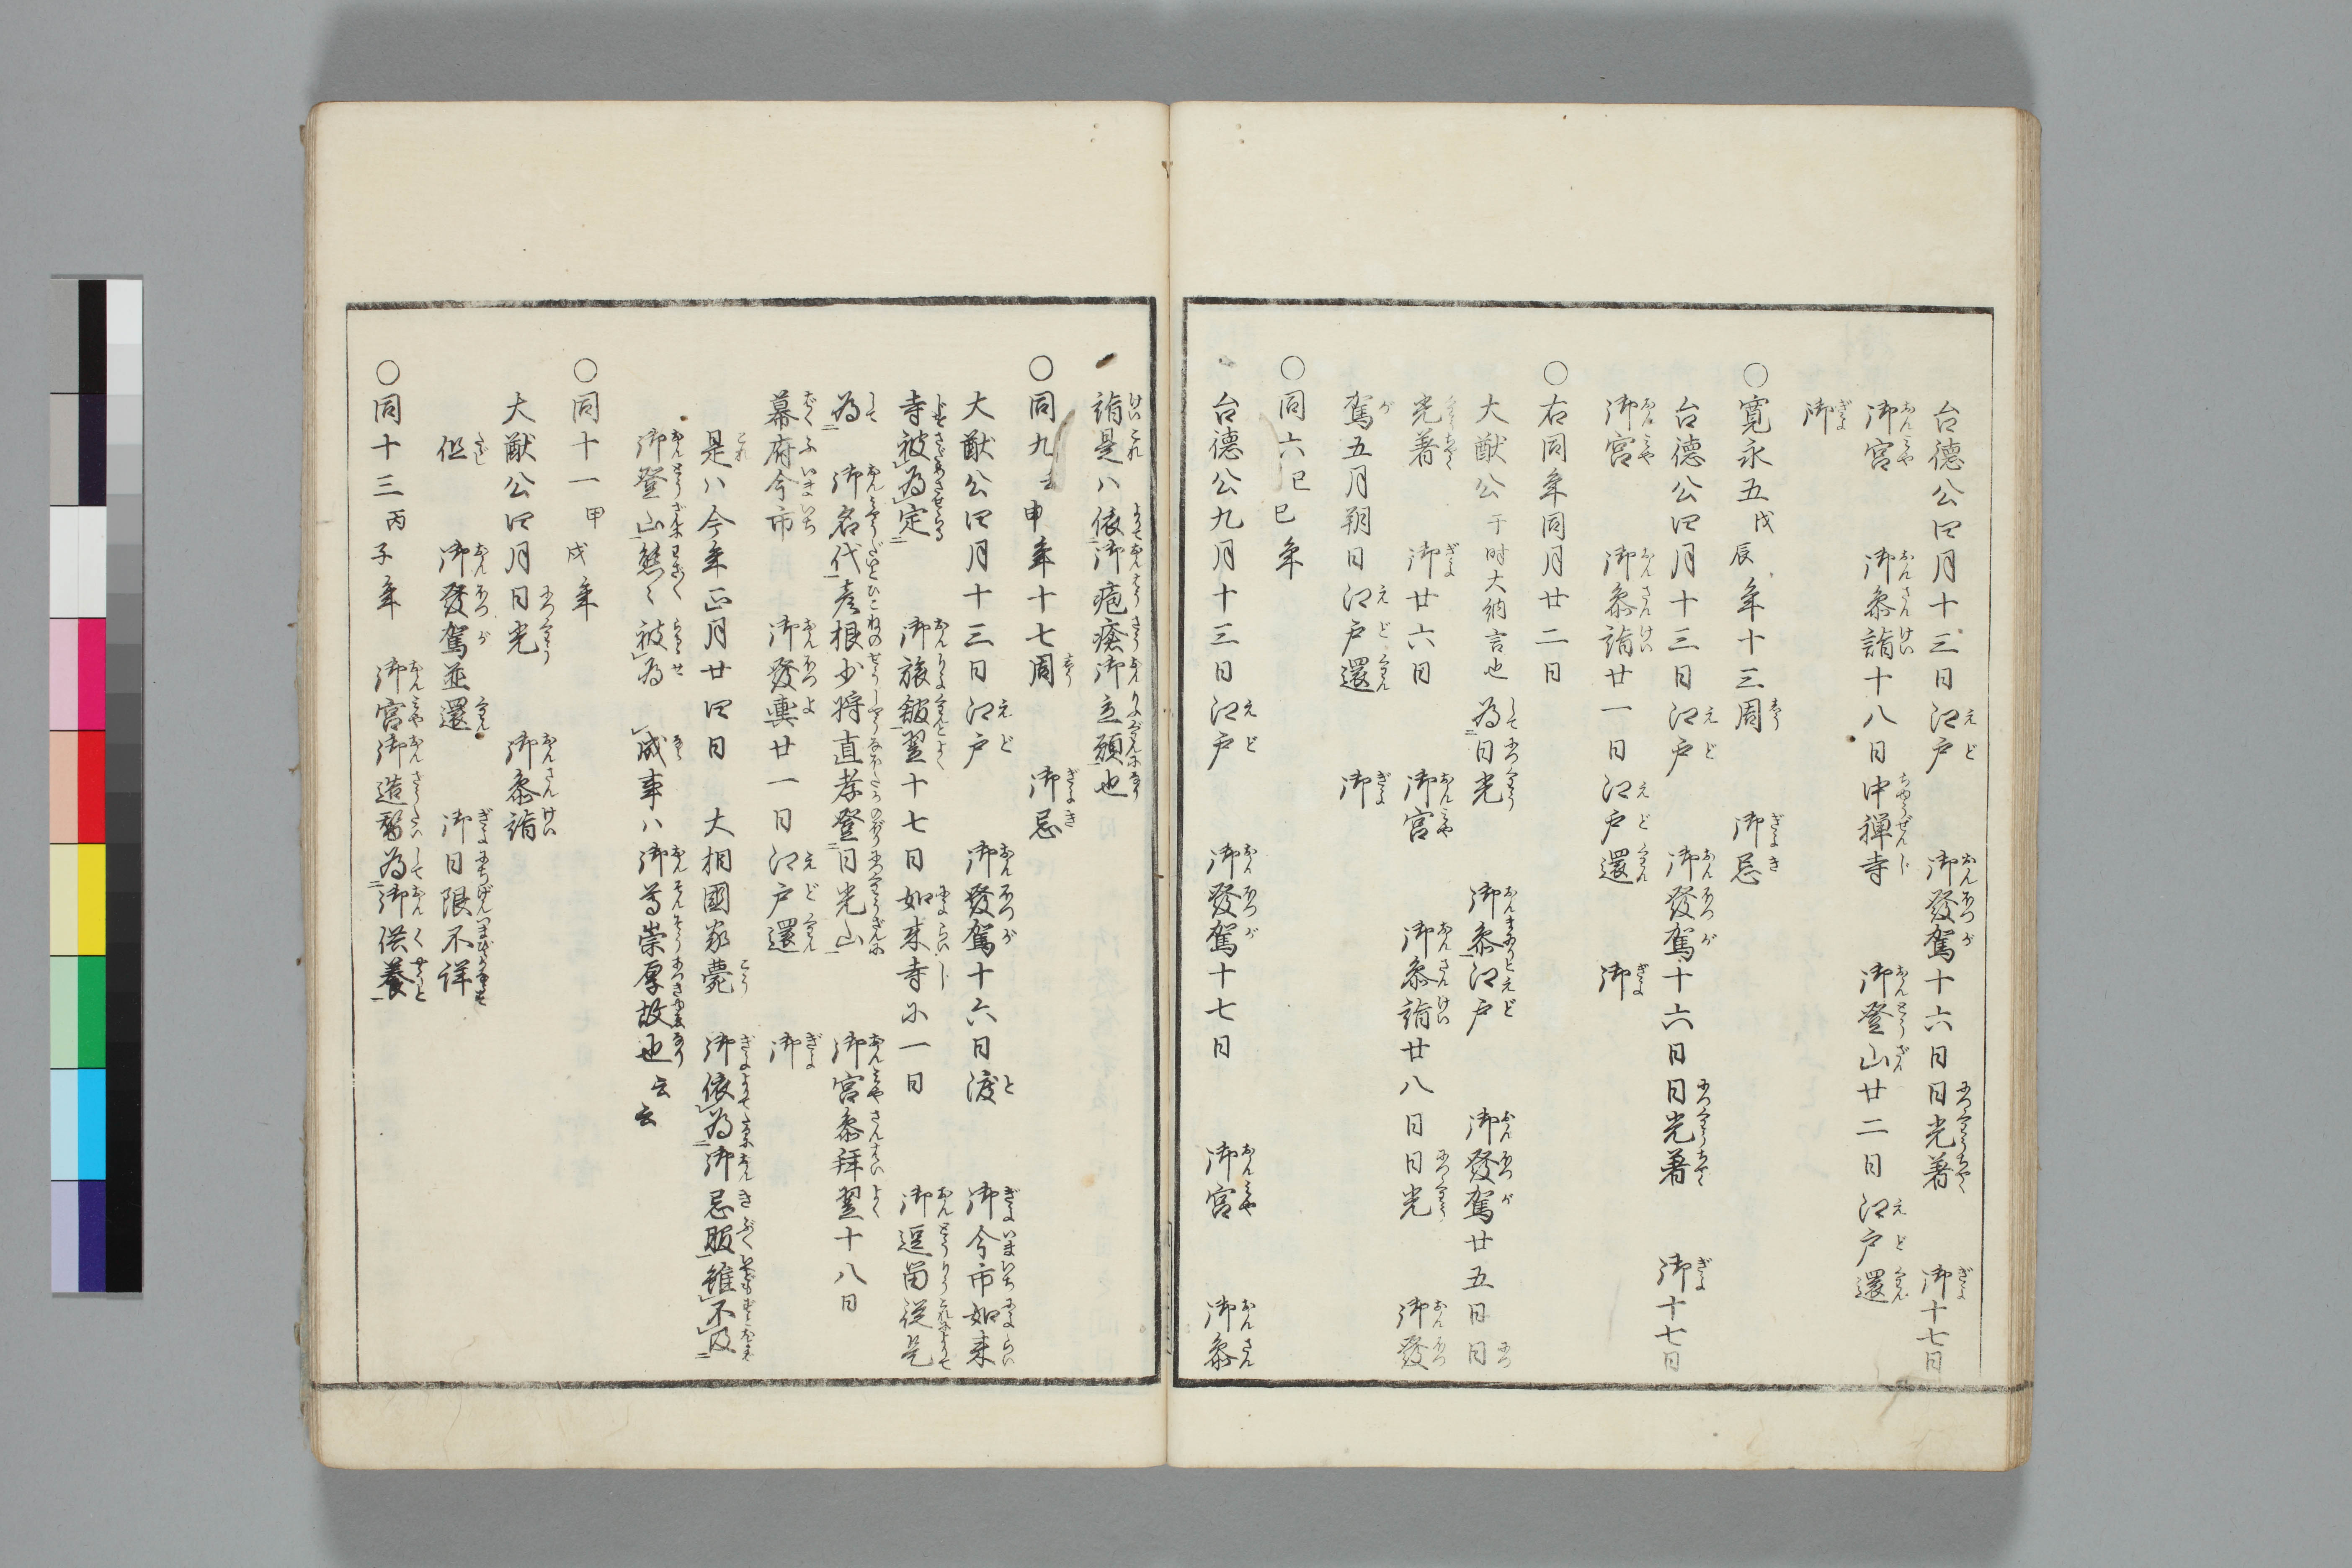 台德公四月十三日江戸　御發駕十六日日光著　御十七日
御宮　御叅詣十八日中禅寺　御登山廿二日江戸還
御
○寛永五戊辰年十三周　御忌
台德公四月十三日江戸　御發駕十六日日光著　御十七日
御宮　御叅詣廿一日江戸還　御
○右同年同月廿二日
大猷公于時大納言也為日光　御叅江戸　御發駕廿五日日
光著　御廿六日　御宮　御叅詣廿八日日光　御發
駕五月朔日江戸還　御
○同六己巳年
台德公九月十三日江戸　御發駕十七日　御宮　御叅
詣是ハ依御疱瘡御立願也
○同九壬申年十七周　御忌
大猷公四月十三日江戸　御發駕十六日渡　御今市如来
寺被為定　御旅舘翌十七日如来寺ニ一日　御逗留従是
為　御名代彦根少将直孝登日光山　御宮叅拜翌十八日
幕府今市　御發輿廿一日江戸還　御
是ハ今年正月廿四日　大相國家薨　御依為御忌服雖不及
御登山態々被為　成事ハ御尊崇厚故也云云
○同十一甲戌年
大猷公四月日光　御叅詣
但　御發駕並還　御日限不詳
○同十三丙子年　御宮御造替為御供養